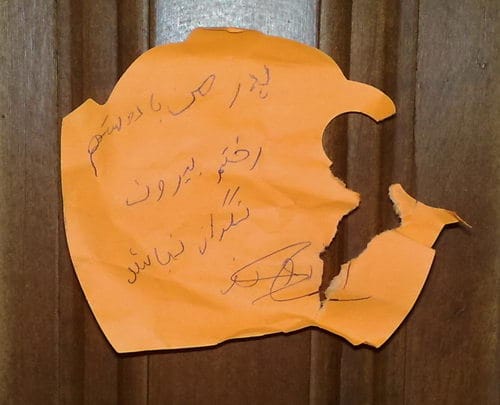 پدر من با دوستم
رفتم بیرون
نگران نباشد